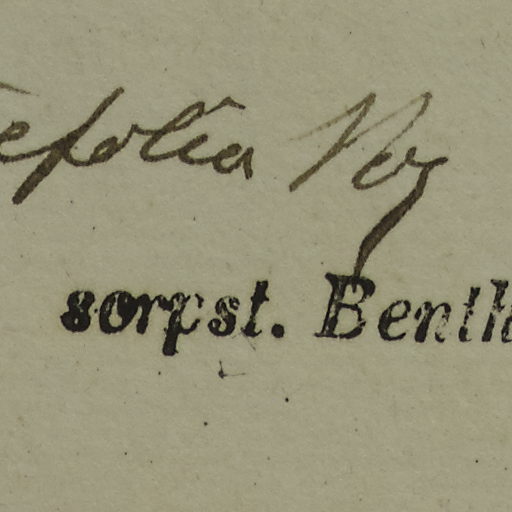 efolia
sorpst. Benth